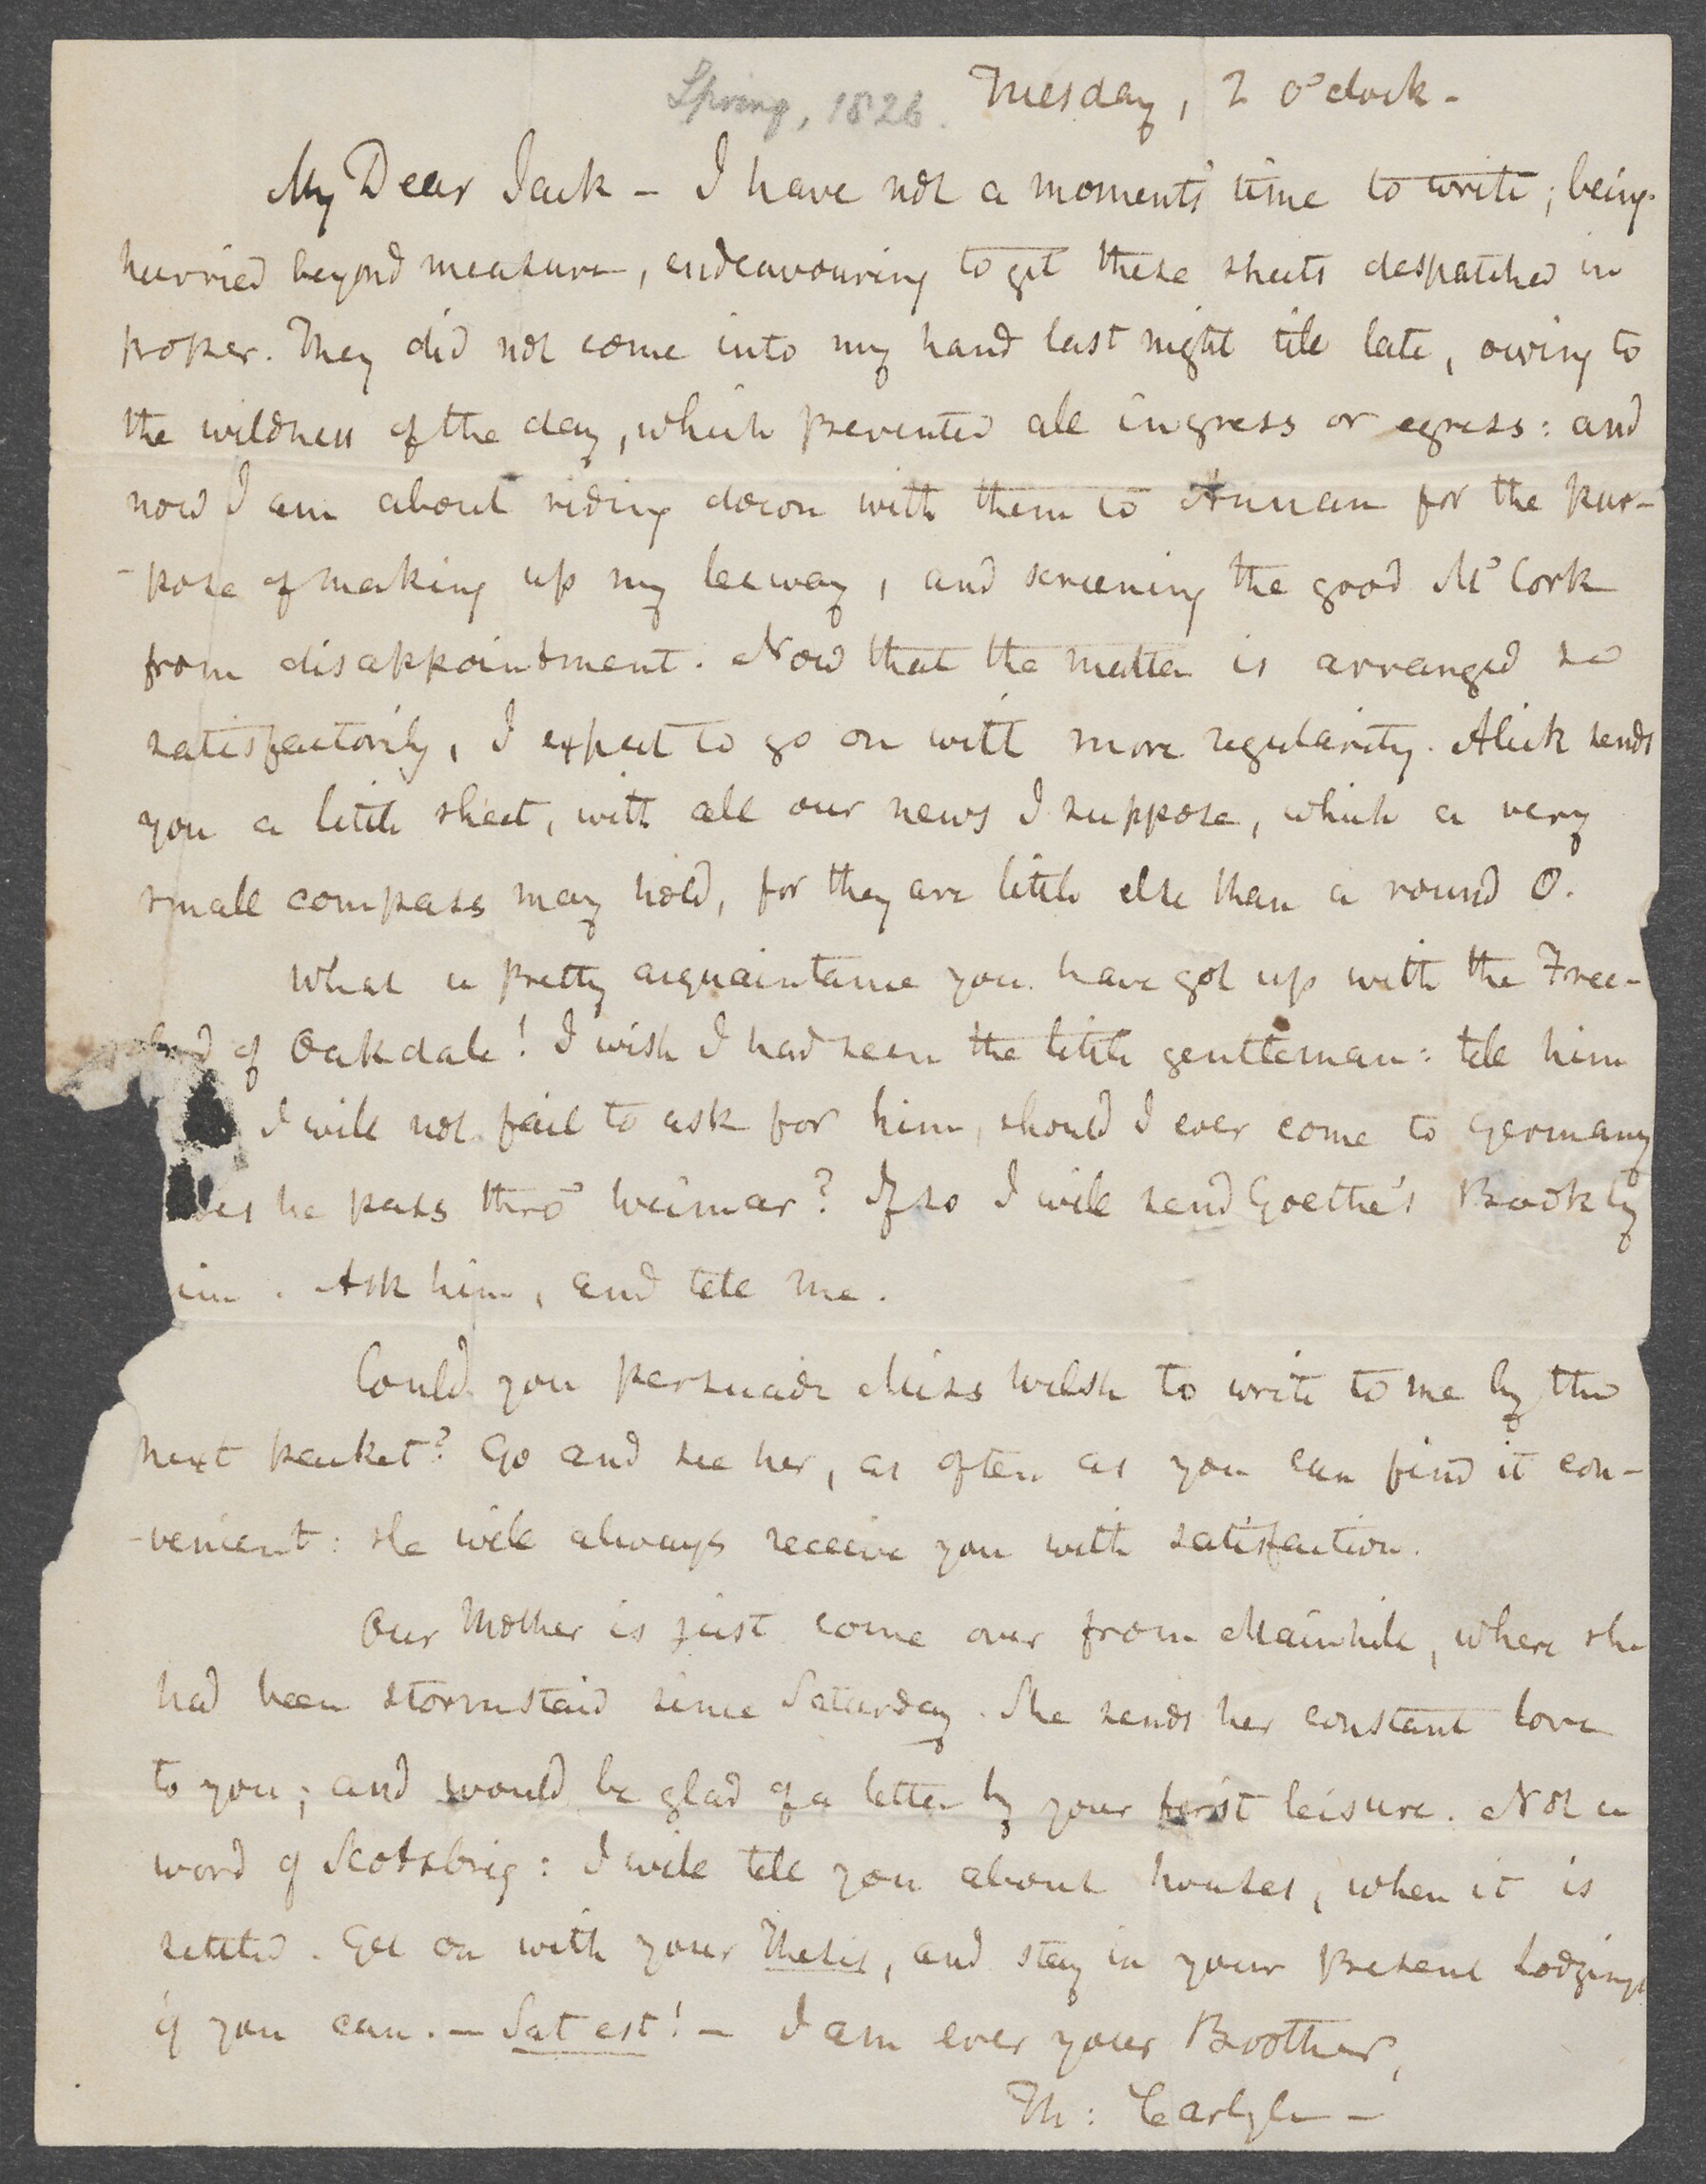 Spring, 1826. Tuesday, 2 o'clock -
My Dear Jack - I have not a moments' time to write; being
hurried beyond measure, endeavouring to get these sheets despatched in
proper. They did not come into my hand last night till late, owing to
the wildness of the day, which prevented all ingress or egress: and
now I am about riding down with them to Annan for the pur-
-pose of making up my leeway, and screening the good McCork
from disappointment. Now that the matter is arranged so
satisfactorily, I expect to go on with more regularity. Alick sends
you a little sheet, with all our news I suppose, which a very
small compass may hold, for they are little else than a round O.
What a pretty acquaintance you have got up with the Free-
of Oakdale! I wish I had seen the little gentleman: tell him
I will not fail to ask for him, should I ever come to Germany
he pass thro' Weimar? If so I will send Goethe's Book by
im. Ask him, and tell me.
Could you persuade Miss Welsh to write to me by the
next packet? Go and see her, as often as you can find it con-
-venient: she will always receive you with satisfaction.
Our Mother is just come over from Mainhill, where she
had been stormstaid since Saturday. She sends her constant love
to you; and would be glad of a letter by your first leisure. Not a
word of Scotsbrig: I will tell you about houses, when it is
settled. Get on with your Thesis, and stay in your present lodgings
if you can. - Sat est! - I am ever your Brother,
Th: Carlyle -